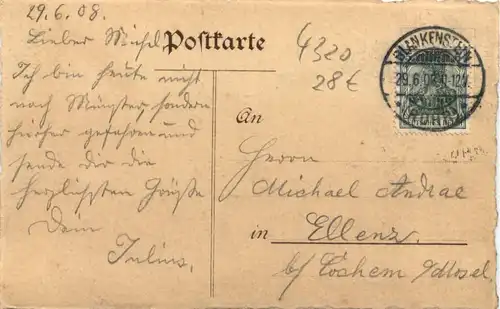 29.6.08.
Lieber Michel
Ich bin heute nicht
nach Münster, sondern
hierher gefahren und
sende dir die
herzlichsten Grüße
Dein
Julius.
Postkarte
4320
28€
BLANKENSTEIN
29.6.08
An
Herrn
Michael Andrae
in Ellenz.
b/ Cochem a/Mosel.